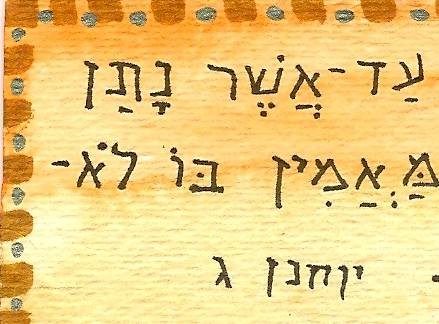 עַד־אֲשֶׁר נָתַן
מַּאֲמִין בּוֹ לֹא־
יוחנן ג